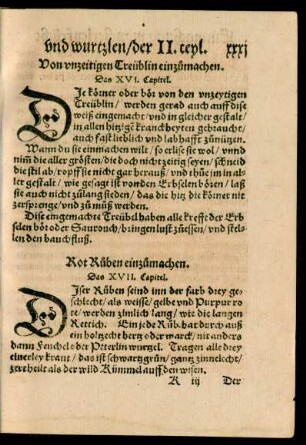 vnd wurtzlen/der II. teyl. xxxj
Von vnzeitigen Treüblin einzümachen.
Das XVI. Capitel.
DJe körner oder bör von den vnzeytigen
Treüblin/ werden gerad auch auff dise
weiß eingemacht/ vnd in gleicher gestalt/
in allen hitzigē kranckheyten gebraucht/
auch fast lieblich vnd labhafft zünützen.
Wann du sie einmachen wilt/ so erließ sie wol/ vnnd
nim̄ die aller grösten/ die doch nit zeitig seyen/ schneid
die stil ab/ ropff sie nicht gar herauß/ vnd thüe im in al-
ler gestalt/ wie gesagt ist von den Erbselen bören/ laß
sie auch nicht zülang sieden/ das die hitz die körner nit
zersprenge/ vnd zü müß werden.
Dise eingemachte Treübel haben alle krefft der Erb
selen bör oder Saurouch/ bringen lust zü essen/ vnd stel-
len den bauchfluß.
Rot Rüben einzümachen.
Das XVII. Capitel.
DJser Rüben seind inn der farb drey ge-
schlecht/ als weisse/ gelbe vnd Purpur ro
te/ werden zimlich lang/ wie die langen
Rettich. Ein jede Rüb hat durch auß
ein holtzecht hertz oder marck/ nit anders
dann Fenchel oder Peterlin wurtzel. Tragen alle drey
einerley kraut/ das ist schwartzgrün/ gantz zinnelecht/
zertheilt als der wild Kümmel auff den wisen.
K iij Der